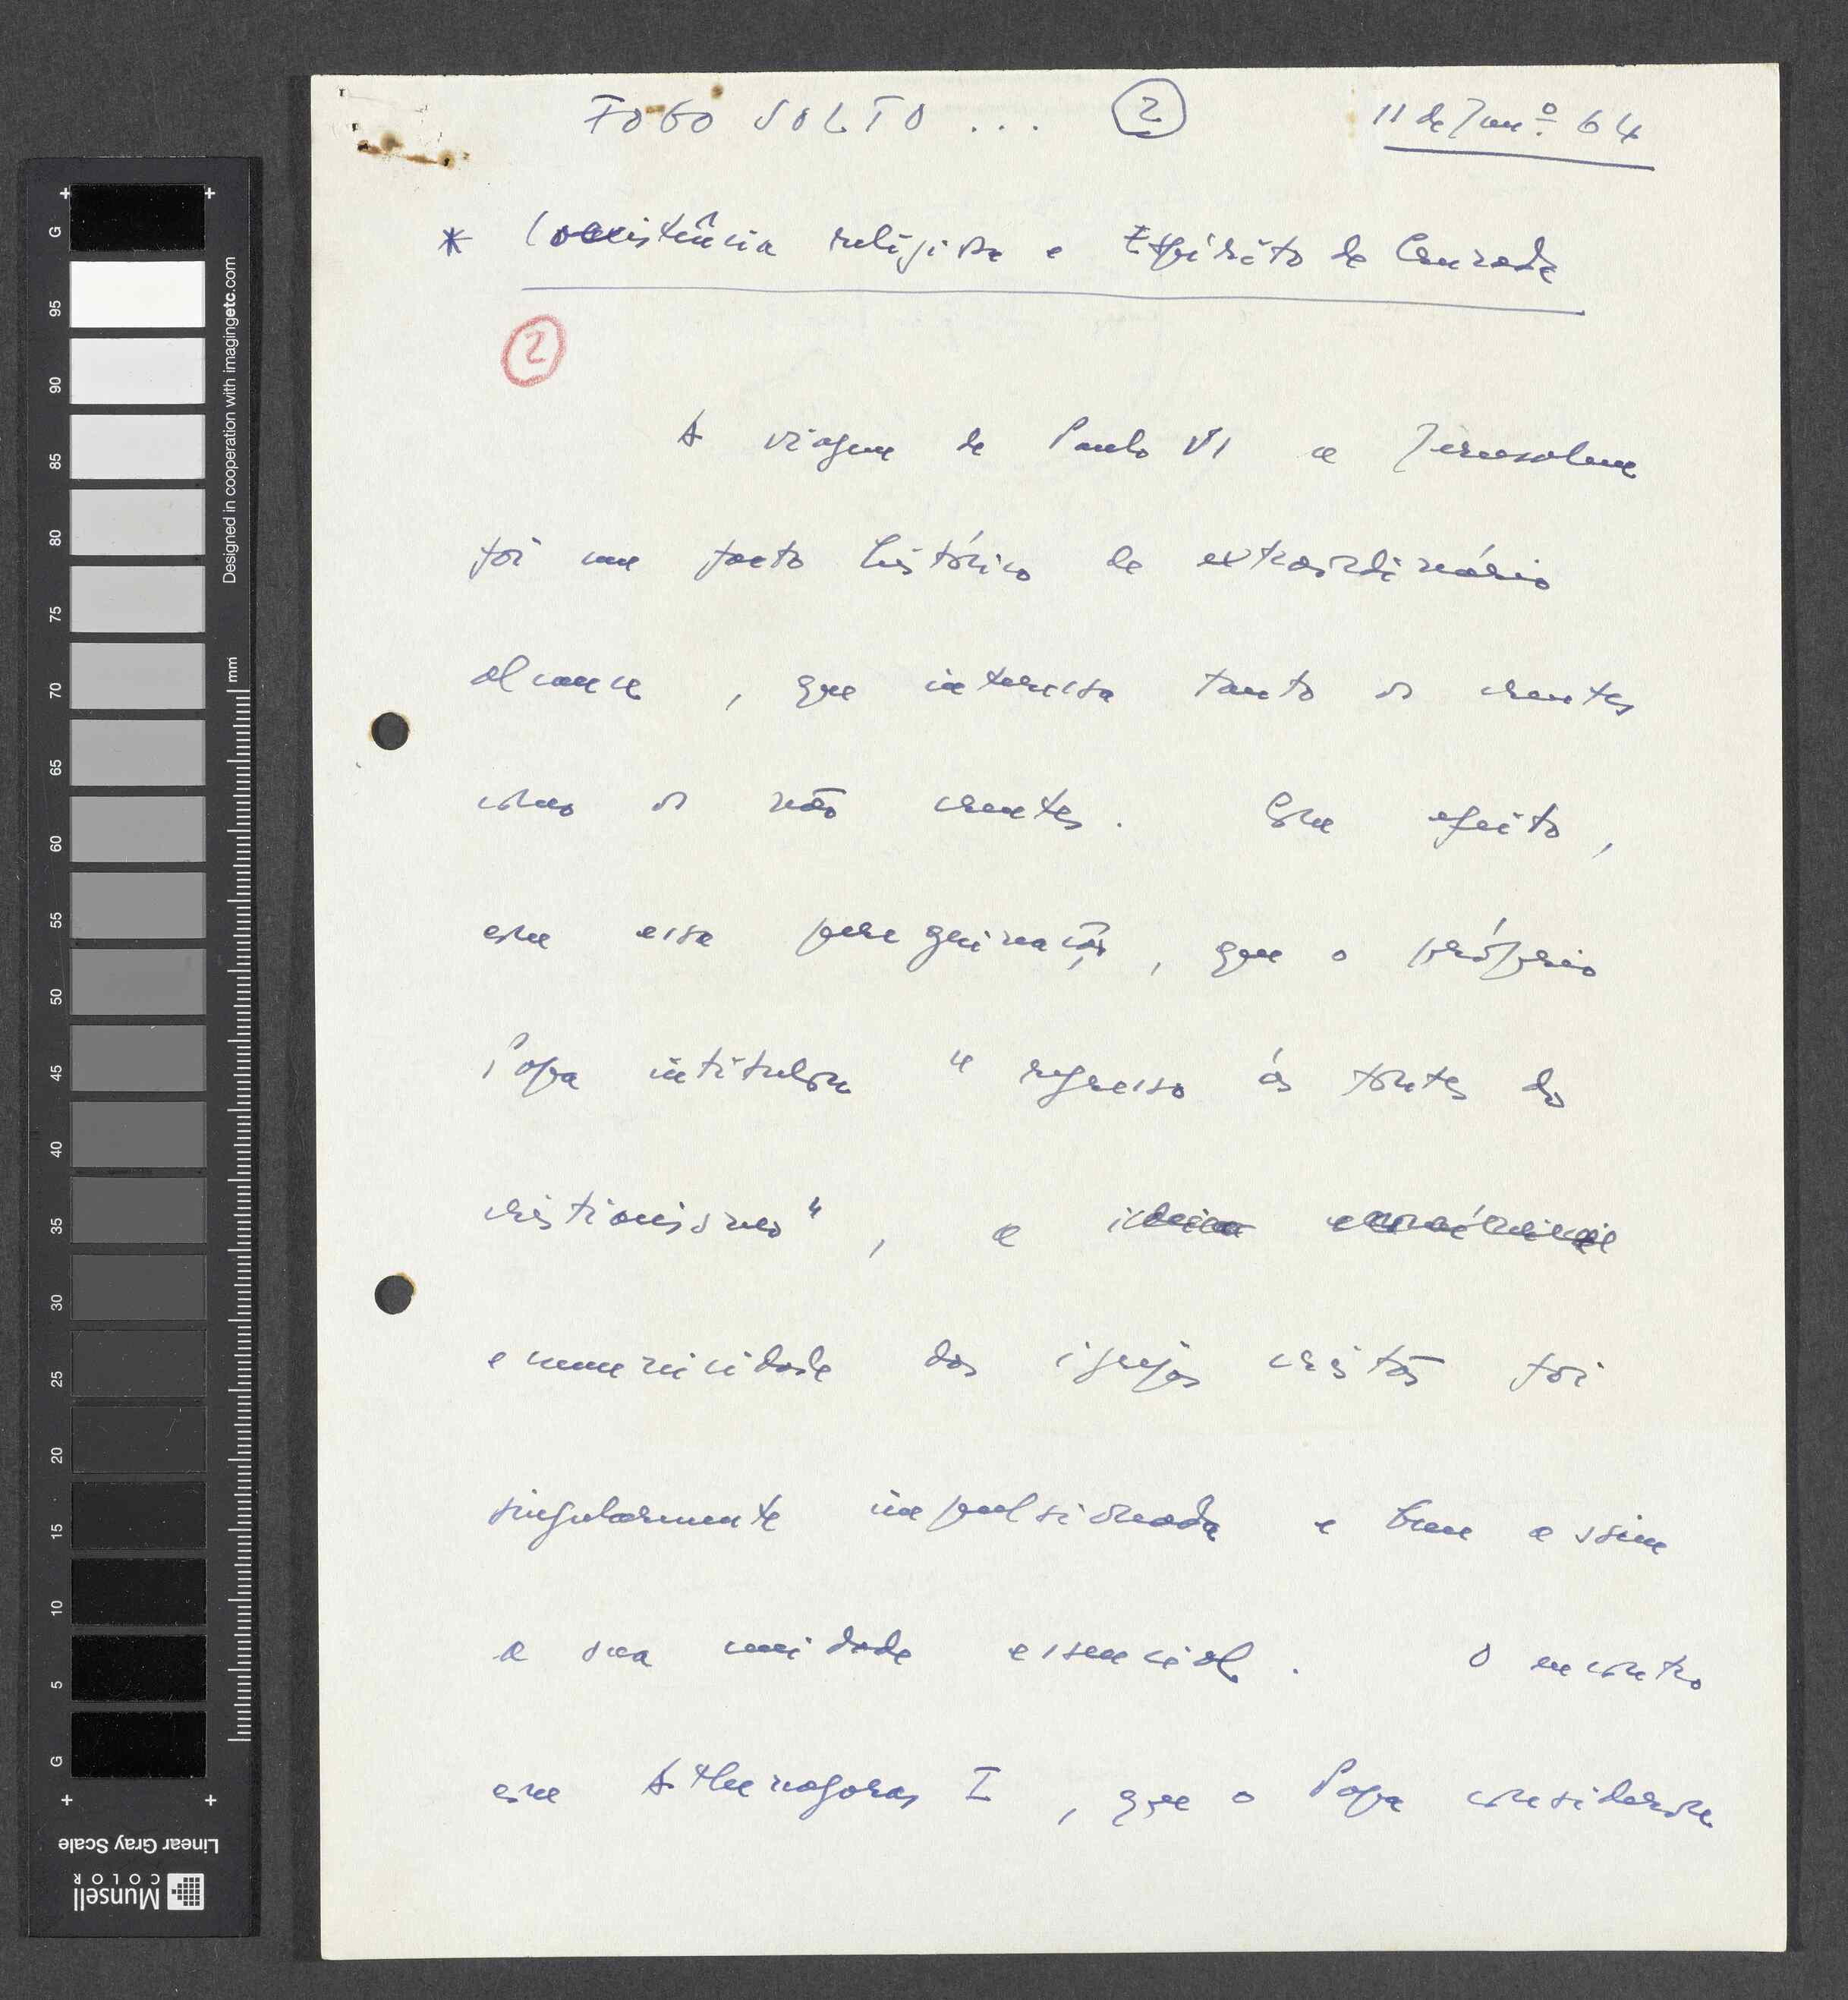 FOGO SOLTO ... 2 11 de Jan.º 64
* Coexistência religiosa e Espírito de Cruzada
2
A viagem de Paulo VI a Jerusalem
foi um facto histórico de extraordinário
alcance, que interessa tanto os crentes
como os não crentes. Com efeito,
com essa peregrinação, que o próprio
Papa intitulou "regresso às fontes do
cristianismo", a
ecumenicidade das igrejas cristãs foi
singularmente impulsionada e bem assim
a sua unidade essencial. O encontro
com Athenagoras I, que o Papa considerou
G 95 90 85 80 75 70 65 60 55 50 45 40 35 30 25 20 15 10 5 G
Designed in cooperation with imagingetc.com
mm
Linear Gray Scale
Munsell
COLOR